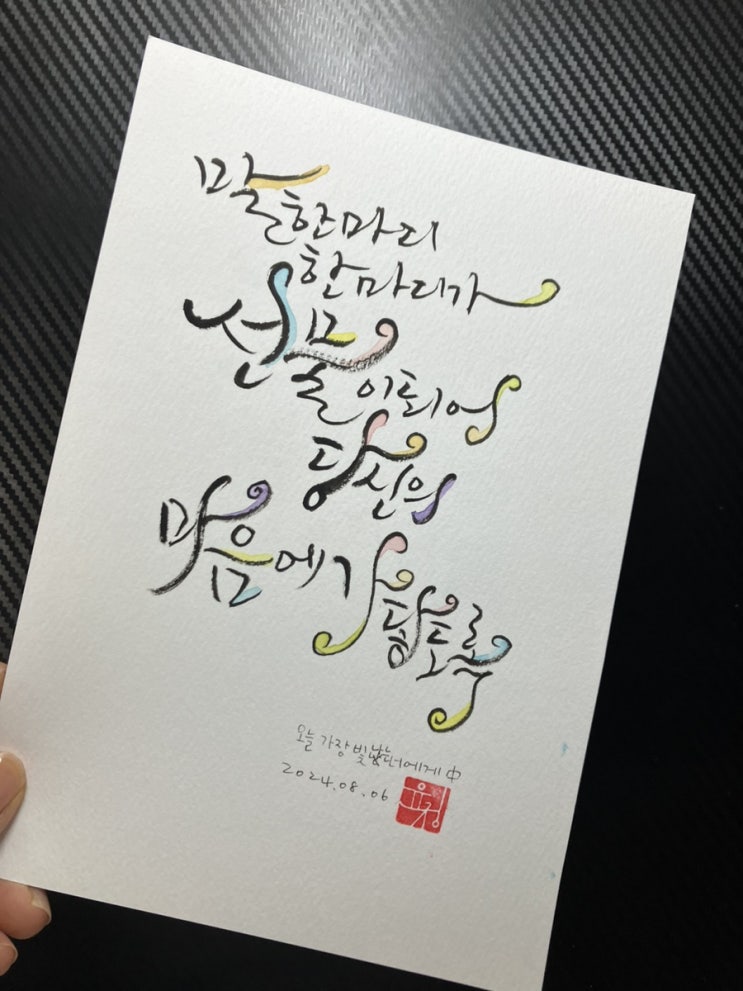 말한마디
한마디가
선물이되어
당신의
마음에가닿토록
오늘 가장 빛났던 너에게 中
2024.08.06